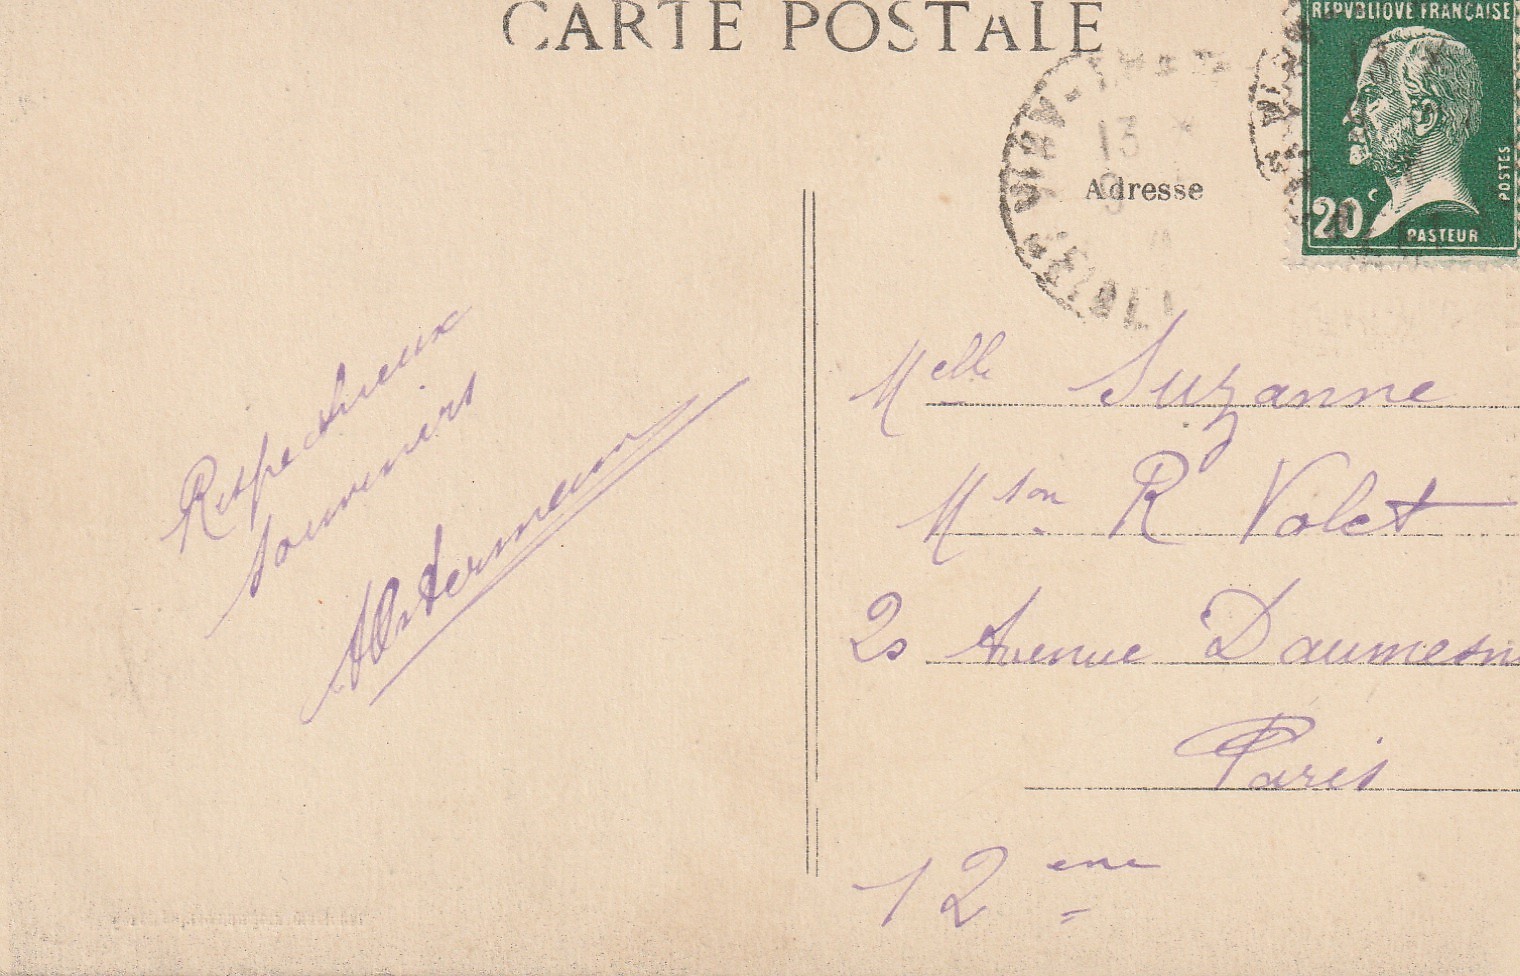 CARTE POSTALE
REPVBLIQVE FRANÇAISE
POSTES
20c
PASTEUR
13
Adresse
Respectueux
souvenirs
Melle Suzanne
Mson R Volet
Avenue Daumesn
Paris
12 eme